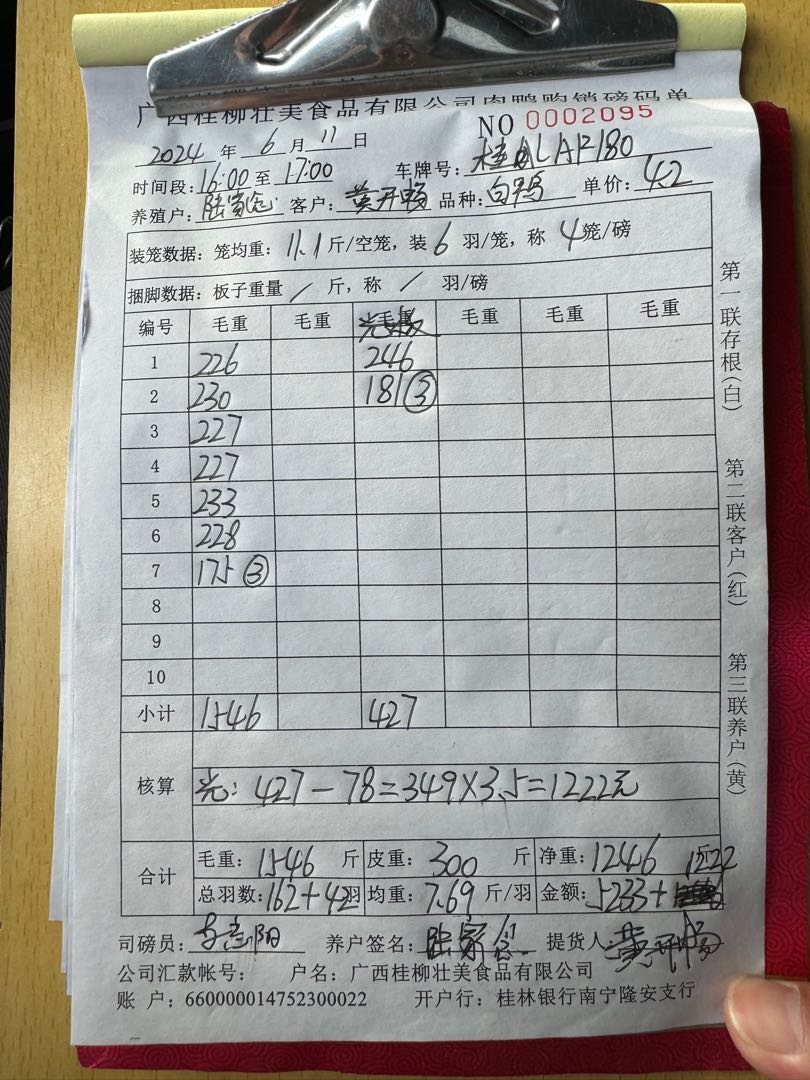 广西桂柳壮美食品有限公司肉鸭购销磅码单
NO 0002095
2024 年 6 月 11 日
时间段: 16:00 至 17:00 车牌号:
养殖户: 客户: 黄开畅 品种: 白鸭 单价: 4.2
装笼数据: 笼均重: 11.1 斤/空笼, 装 6 羽/笼, 称 4 笼/磅
捆脚数据: 板子重量 / 斤, 称 / 羽/磅
编号 毛重 毛重 毛重 毛重 毛重
1 226 246
2 230 181 ③
3 227
4 227
5 233
6 228
7 175 ③
8
9
10
小计 1546 427
核算 光: 427-78=349×3.5=1222元
合计 毛重: 1546 斤 皮重: 300 斤 净重: 1246 1222
总羽数: 162+42羽 均重: 7.69 斤/羽 金额: 5233+
司磅员: 养户签名: 提货人: 黄开畅
公司汇款帐号: 户名: 广西桂柳壮美食品有限公司
账 户: 660000014752300022 开户行: 桂林银行南宁隆安支行
第一联存根(白) 第二联客户(红) 第三联养户(黄)